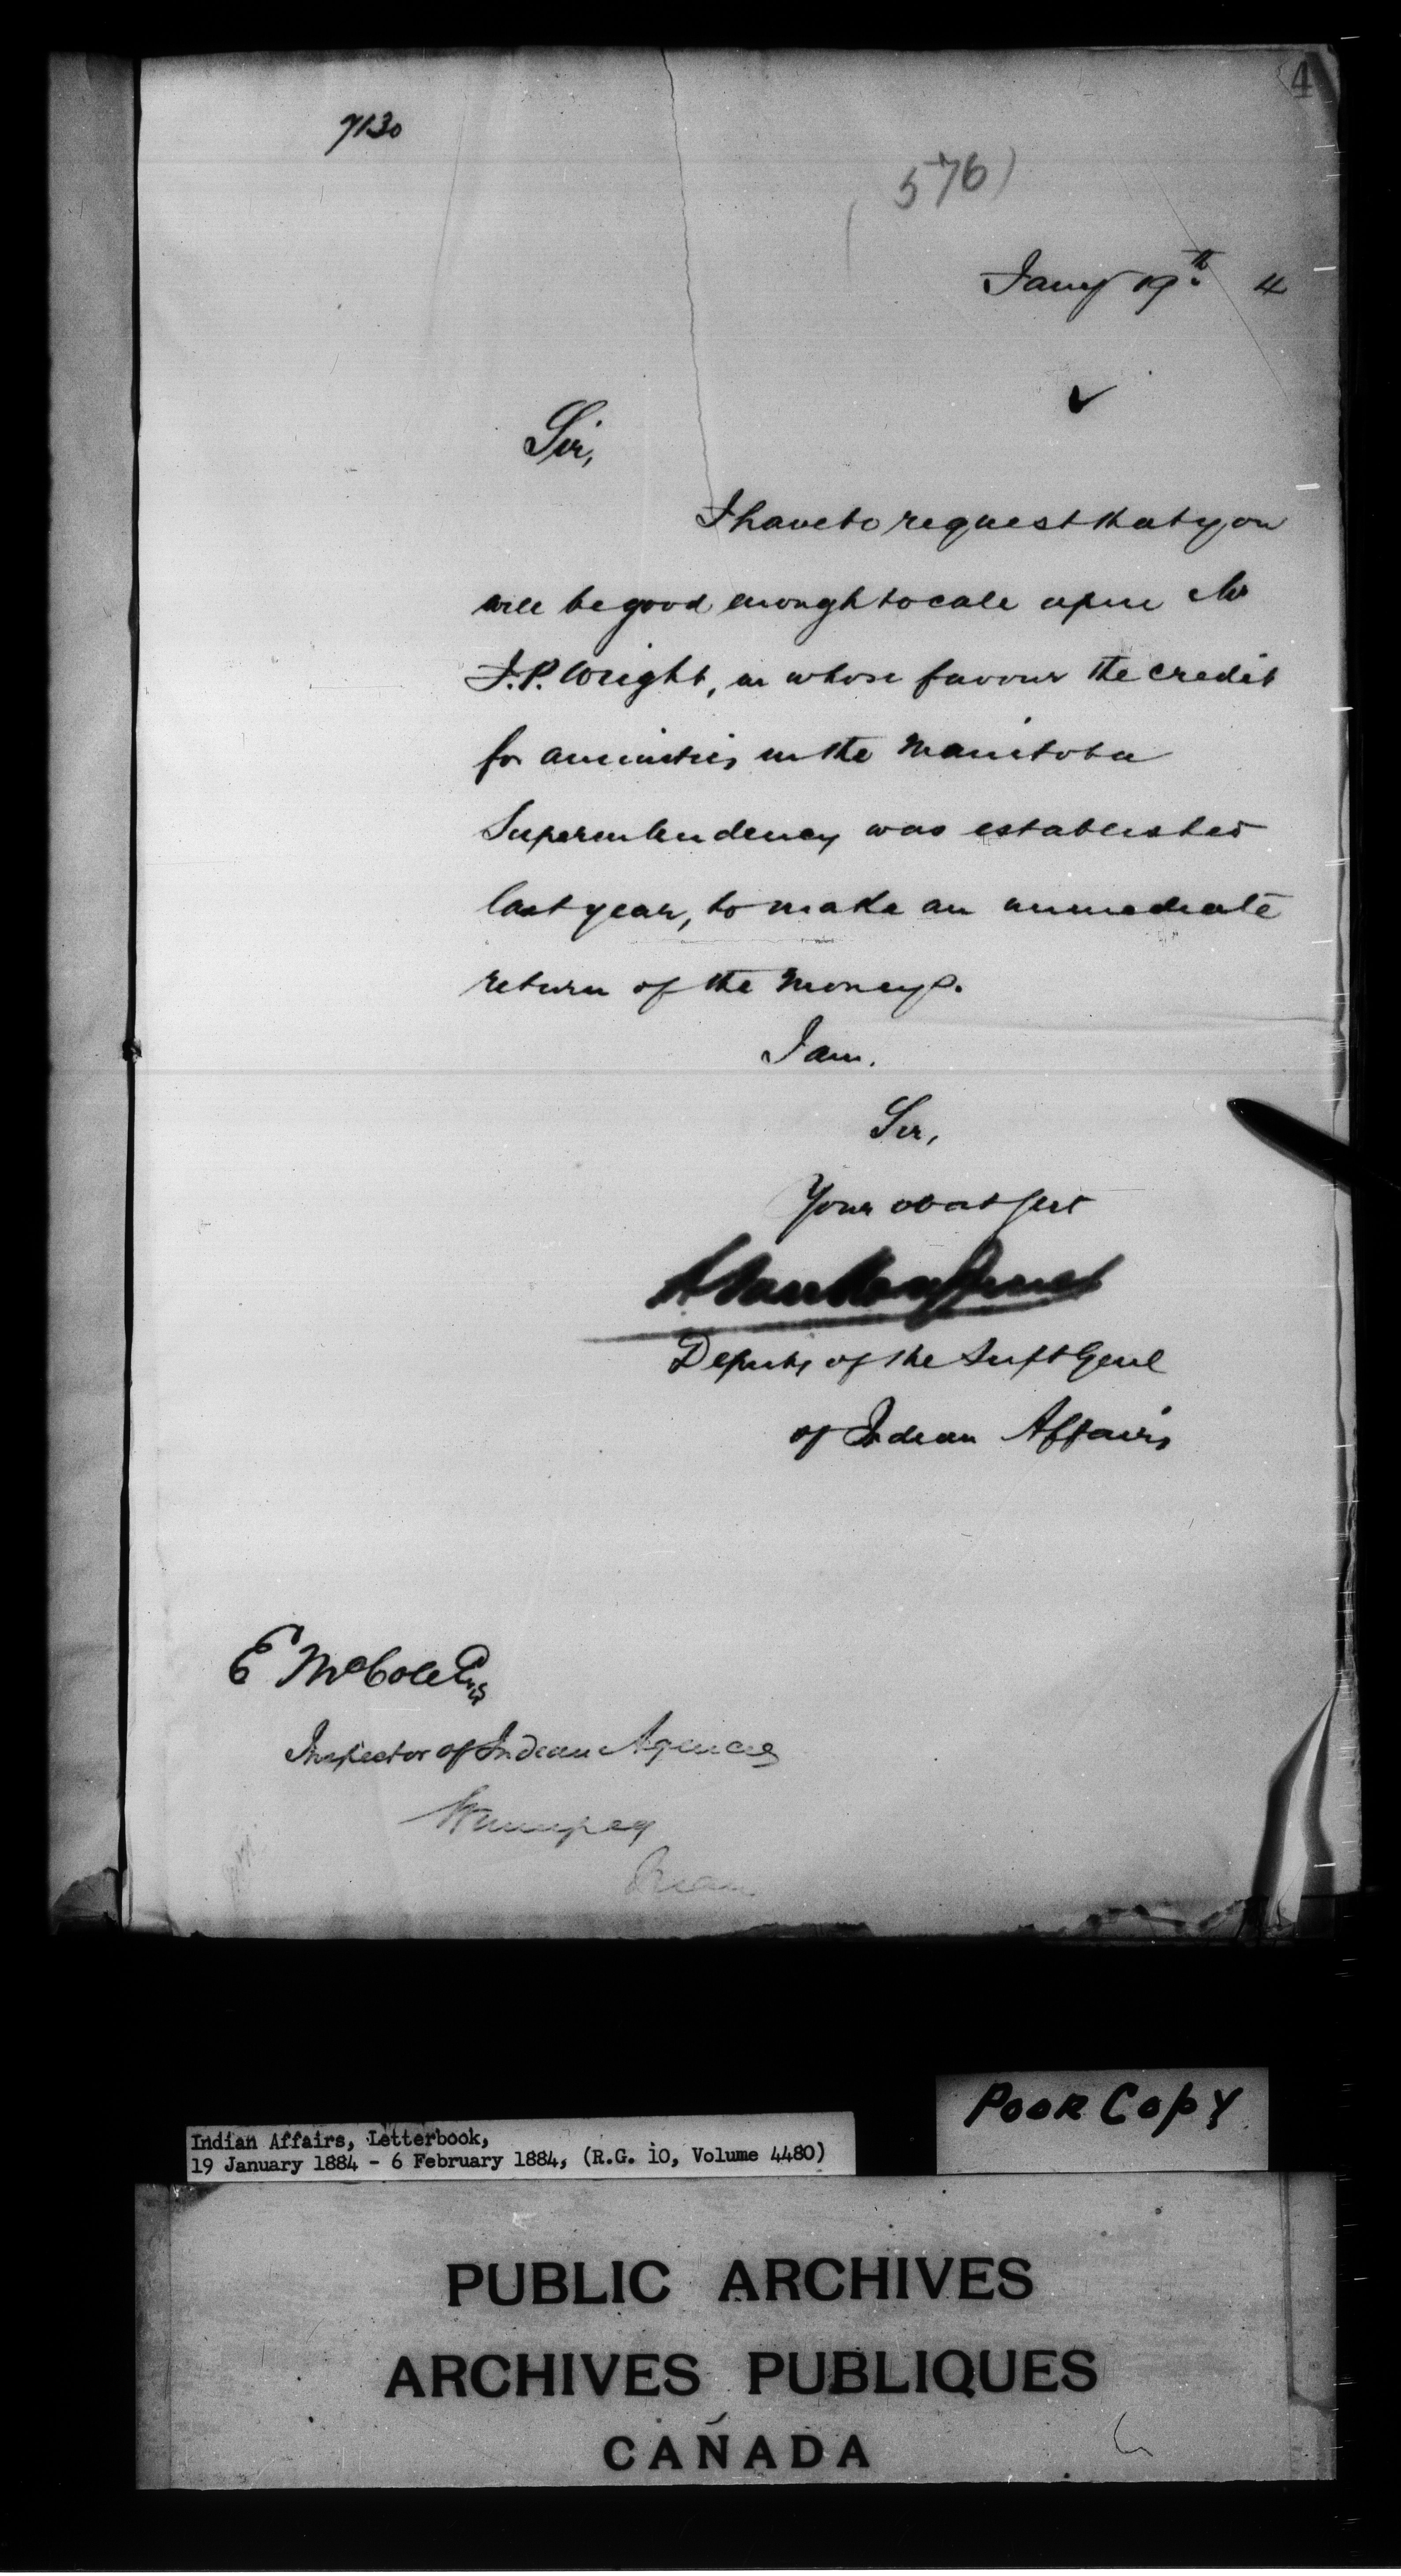 4
7130
(576)
Jany 19th 4
Sir,
I have to request that you
will be good enough to call upon Mr
J.P. Wright, in whose favour the credit
for annuities in the Manitoba
Superintendency was established
last year, to make an immediate
return of the moneys.
I am.
Sir,
Your obdt Servt
L. VanKoughnet
Deputy of the Supt Genl
of Indian Affairs
E McColl Esq
Inspector of Indian Agencies
Winnipeg
Man
POOR COPY
Indian Affairs, Letterbook,
19 January 1884 - 6 February 1884, (R.G. 10, Volume 4480)
PUBLIC ARCHIVES
ARCHIVES PUBLIQUES
CANADA